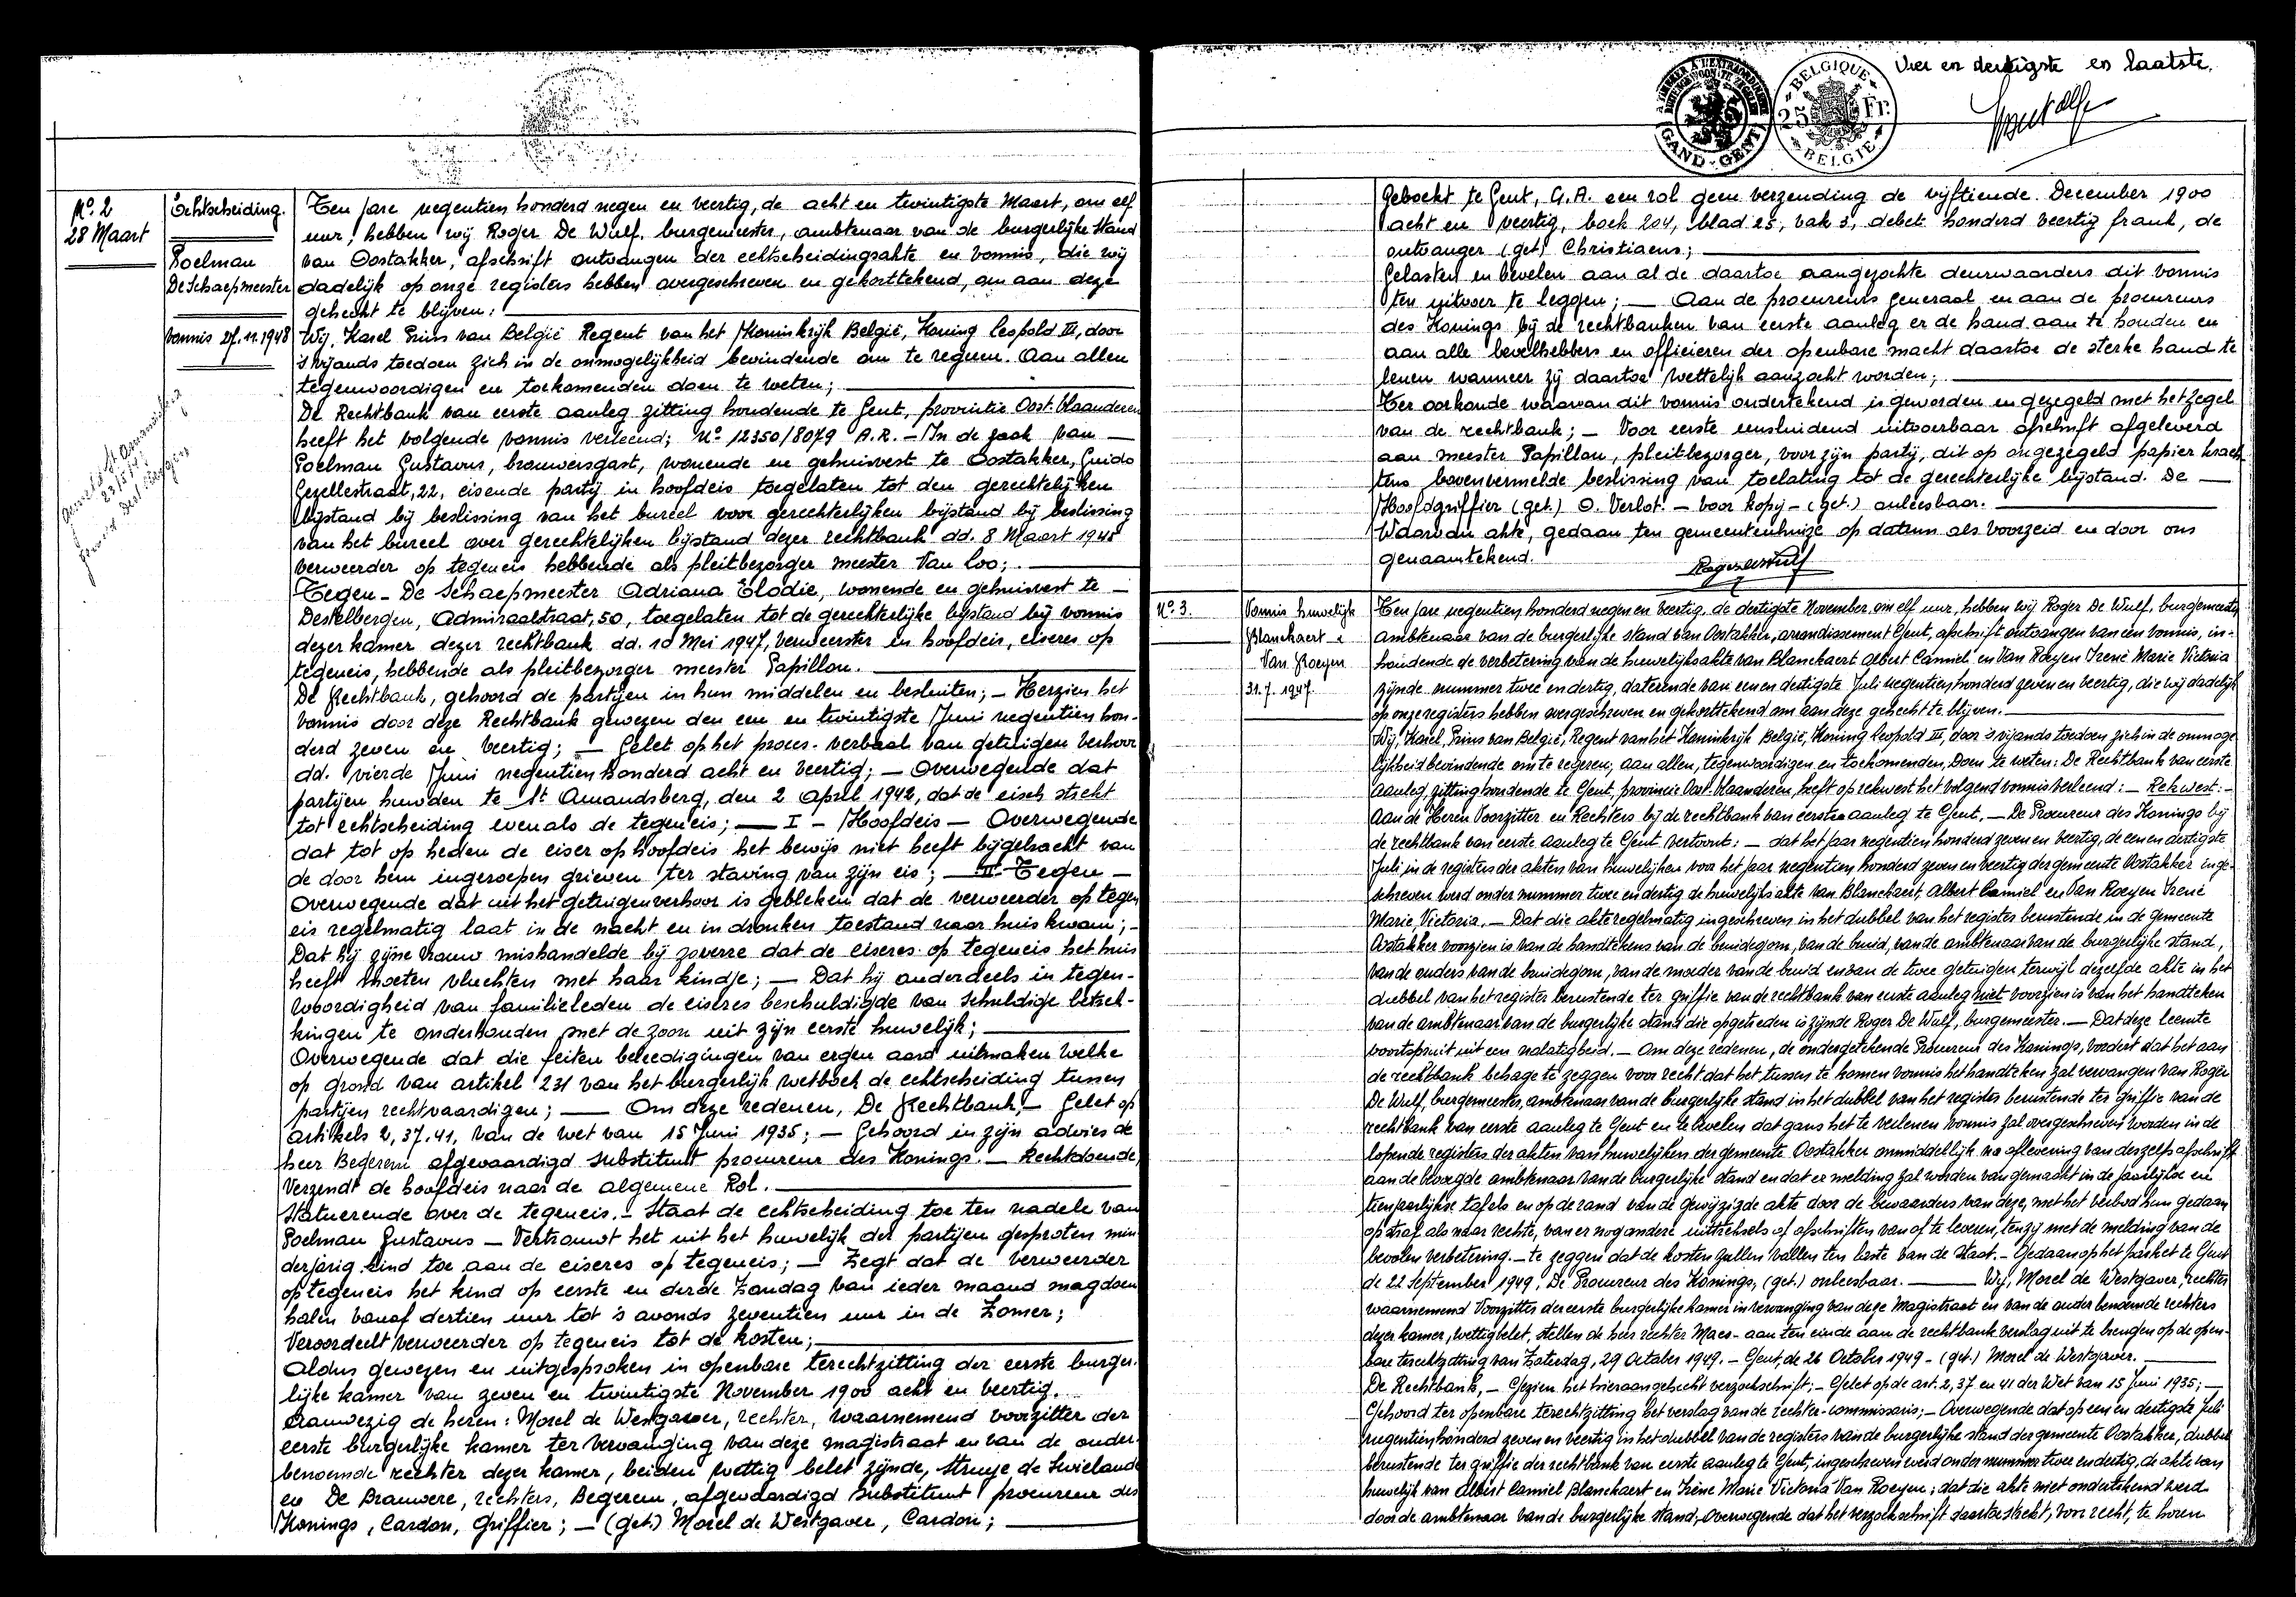 Nº 2
28 Maart
Echtscheiding.
Poelman
De Schaepmeester
Vonnis 27.11.1948
Ten jare negentien honderd negen en veertig, de acht en twintigste Maart, om elf
uur, hebben wij Roger De Wulf, burgemeester, ambtenaar van de burgerlijke stand
van Oostakker, afschrift ontvangen der echtscheidingsakte en vonnis, die wij
dadelijk op onze registers hebben overgeschreven en gekorttekend, om aan deze
gehecht te blijven:
Wij, Karel Prins van België Regent van het Koninkrijk België, Koning Leopold III, door
's vijands toedoen zich in de onmogelijkheid bevindende om te regeren. Aan allen
tegenwoordigen en toekomenden doen te weten;
De Rechtbank van eerste aanleg zitting houdende te Gent, provintie Oost-Vlaanderen
heeft het volgende vonnis verleend; Nº 12350/8079 A.R. - In de zaak van —
Poelman Gustavus, brouwersgast, wonende en gehuisvest te Oostakker, Guido
Gezellestraat, 22, eisende partij in hoofdeis toegelaten tot den gerechtelijken
bijstand bij beslissing van het bureel voor gerechterlijken bijstand bij beslissing
van het bureel over gerechtelijken bijstand dezer rechtbank dd. 8 Maart 1945
verweerder op tegeneis hebbende als pleitbezorger meester Van Loo;
Tegen - De Schaepmeester Adriana Elodie, wonende en gehuisvest te —
Destelbergen, Admiraalstraat, 50, toegelaten tot de gerechterlijke bijstand bij vonnis
dezer kamer dezer rechtbank dd. 10 Mei 1947, verweerster in hoofdeis, eiseres op
tegeneis, hebbende als pleitbezorger meester Papillon.
De Rechtbank, gehoord de partijen in hun middelen en besluiten; - Herzien het
vonnis door deze Rechtbank gewezen den een en twintigste Juni negentien hon-
derd zeven en veertig; — Gelet op het proces-verbaal van getuigen verhoor
dd. vierde Juni negentien honderd acht en veertig; — Overwegende dat
partijen huwden te St Amandsberg, den 2 April 1942, dat de eisch strekt
tot echtscheiding evenals de tegeneis; — I - Hoofdeis — Overwegende
dat tot op heden de eiser op hoofdeis het bewijs niet heeft bijgebracht van
de door hem ingeroepen grieven ter staving van zijn eis; — II - Tegen —
Overwegende dat uit het getuigenverhoor is gebleken dat de verweerder op tegen
eis regelmatig laat in de nacht en in dronken toestand naar huis kwam; -
Dat hij zijne vrouw mishandelde bij zoverre dat de eiseres op tegeneis het huis
heeft moeten vluchten met haar kindje; — Dat hij anderdeels in tegen-
woordigheid van familieleden de eiseres beschuldigde van schuldige betrek-
kingen te onderhouden met de zoon uit zijn eerste huwelijk;
Overwegende dat die feiten beleedigingen van ergen aard uitmaken welke
op grond van artikel 231 van het burgerlijk wetboek de echtscheiding tussen
partijen rechtvaardigen; — Om deze redenen, De Rechtbank, — Gelet op
artikels 2, 37, 41, van de wet van 15 Juni 1935; — Gehoord in zijn advies de
heer Begerem afgevaardigd substituut procureur des Konings. — Rechtdoende,
Verzendt de hoofdeis naar de algemene Rol.
Statuerende over de tegeneis. - Staat de echtscheiding toe ten nadele van
Poelman Gustavus — Vertrouwt het uit het huwelijk der partijen gesproten min
derjarig kind toe aan de eiseres op tegeneis; — Zegt dat de verweerder
op tegeneis het kind op eerste en derde Zondag van ieder maand mag doen
halen vanaf dertien uur tot 's avonds zeventien uur in de Zomer;
Veroordeelt verweerder op tegeneis tot de kosten;
Aldus gewezen en uitgesproken in openbare terechtzitting der eerste burger-
lijke kamer van zeven en twintigste November 1900 acht en veertig.
Aanwezig de heren: Morel de Westgaver, rechter, waarnemend voorzitter der
eerste burgerlijke kamer ter vervanging van deze magistraat en van de ouder
benoemde rechter dezer kamer, beiden wettig belet zijnde, Struye de Swielande
en De Brauwere, rechters, Begerem, afgevaardigd substituut procureur des
Konings, Cardon, Griffier; — (get.) Morel de Westgaver, Cardon;
GAND - GENT
BELGIQUE
25 Fr.
BELGIE
Vier en dertigste en laatste.
Geboekt te Gent, G.A. een rol geen verzending de vijftiende December 1900
acht en veertig, boek 204, blad 25, vak 3, debet honderd veertig frank, de
ontvanger (get) Christiaens;
Gelasten en bevelen aan al de daartoe aangezochte deurwaarders dit vonnis
ten uitvoer te leggen; — Aan de procureurs generaal en aan de procureurs
des Konings bij de rechtbanken van eerste aanleg er de hand aan te houden en
aan alle bevelhebbers en officieren der openbare macht daartoe de sterke hand te
lenen wanneer zij daartoe wettelijk aanzocht worden;
Ter oorkonde waarvan dit vonnis ondertekend is geworden en gezegeld met het zegel
van de rechtbank; — Voor eerste eensluidend uitvoerbaar afschrift afgeleverd
aan meester Papillon, pleitbezorger, voor zijn partij, dit op ongezegeld papier krach
tens bovenvermelde beslissing van toelating tot de gerechterlijke bijstand. De —
Hoofdgriffier (get.) O. Verlot. — voor kopij - (get.) onleesbaar.
Waarvan akte, gedaan ten gemeentenhuize op datum als voorzeid en door ons
genaamtekend.
Roger de Wulf
Nº 3.
Vonnis huwelijk
Blanckaert &
Van Roeyen
31.7.1947.
Ten jare negentien honderd negen en veertig, de dertigste November, om elf uur, hebben wij Roger De Wulf, burgemeester
ambtenaar van de burgerlijke stand van Oostakker, arrondissement Gent, afschrift ontvangen van een vonnis, in-
houdende de verbetering van de huwelijksakte van Blanckaert Albert Camiel en Van Roeyen Irené Marie Victoria
zijnde nummer twee en dertig, daterende van een en dertigste Juli negentien honderd zeven en veertig, die wij dadelijk
op onze registers hebben overgeschreven en gekorttekend om aan deze gehecht te blijven.
Wij, Karel, Prins van België, Regent van het Koninkrijk België, Koning Leopold III, door 's vijands toedoen zich in de onmoge
lijkheid bevindende om te regeren; aan allen, tegenwoordigen en toekomenden, Doen te weten: De Rechtbank van eerste
aanleg, zitting houdende te Gent, provincie Oost-Vlaanderen, heeft op rekwest het volgend vonnis verleend: — Rekwest: -
Aan de Heren Voorzitter en Rechters bij de rechtbank van eersten aanleg te Gent. — De Procureur des Konings bij
de rechtbank van eerste aanleg te Gent vertoont: — dat het jaar negentien honderd zeven en veertig, de een en dertigste
Juli in de registers der akten van huwelijken voor het jaar negentien honderd zeven en veertig der gemeente Oostakker inge-
schreven werd onder nummer twee en dertig de huwelijksakte van Blanckaert, Albert Camiel en Van Roeyen Irené
Marie, Victoria. — Dat die akte regelmatig ingeschreven in het dubbel van het register berustende in de gemeente
Oostakker voorzien is van de handtekens van de bruidegom, van de bruid, van de ambtenaar van de burgerlijke stand,
van de ouders van de bruidegom, van de moeder van de bruid en van de twee getuigen, terwijl dezelfde akte in het
dubbel van het register berustende ter griffie van de rechtbank van eerste aanleg niet voorzien is van het handteken
van de ambtenaar van de burgerlijke stand die opgetreden is zijnde Roger De Wulf, burgemeester. — Dat deze leemte
voortspruit uit een nalatigheid. — Om deze redenen, de ondergetekende Procureur des Konings, vordert dat het aan
de rechtbank behage te zeggen voor recht dat het tussen te komen vonnis het handteken zal vervangen van Roger
De Wulf, burgemeester, ambtenaar van de burgerlijke stand in het dubbel van het register berustende ter griffie van de
rechtbank van eerste aanleg te Gent en te bevelen dat gans het te verlenen vonnis zal overgeschreven worden in de
lopende registers der akten van huwelijken der gemeente Oostakker onmiddellijk na aflevering van deszelfs afschrift
aan de bevoegde ambtenaar van de burgerlijke stand en dat er melding zal worden van gemaakt in de jaarlijkse en
tienjaarlijkse tafels en op de rand van de gewijzigde akte door de bewaarders van deze, met het verbod hun gedaan
op straf als naar rechte, van er nog andere uittreksels of afschriften van af te leveren, tenzij met de melding van de
bevolen verbetering. — te zeggen dat de kosten zullen vallen ten laste van de staat. — Gedaan op het parket te Gent
de 22 September 1949. De Procureur des Konings, (get.) onleesbaar. — Wij, Morel de Westgaver, rechter
waarnemend Voorzitter der eerste burgerlijke kamer in vervanging van deze Magistraat en van de ouder benoemde rechters
dezer kamer, wettig belet, stellen de heer rechter Maes - aan ten einde aan de rechtbank verslag uit te brengen op de open-
bare terechtzitting van Zaterdag, 29 October 1949. — Gent, de 26 October 1949 - (get.) Morel de Westgaver.
De Rechtbank, — Gezien het hieraangehecht verzoekschrift; — Gelet op de art. 2, 37 en 41 der Wet van 15 Juni 1935; —
Gehoord ter openbare terechtzitting het verslag van de rechter-commissaris; — Overwegende dat op een en dertigste Juli
negentien honderd zeven en veertig in het dubbel van de registers van de burgerlijke stand der gemeente Oostakker, dubbel
berustende ter griffie der rechtbank van eerste aanleg te Gent, ingeschreven werd onder nummer twee en dertig, de akte van
huwelijk van Albert Camiel Blanckaert en Irène Marie Victoria Van Roeyen; dat die akte niet ondertekend werd
door de ambtenaar van de burgerlijke stand; overwegende dat het verzoekschrift daartoe strekt, voor recht, te horen